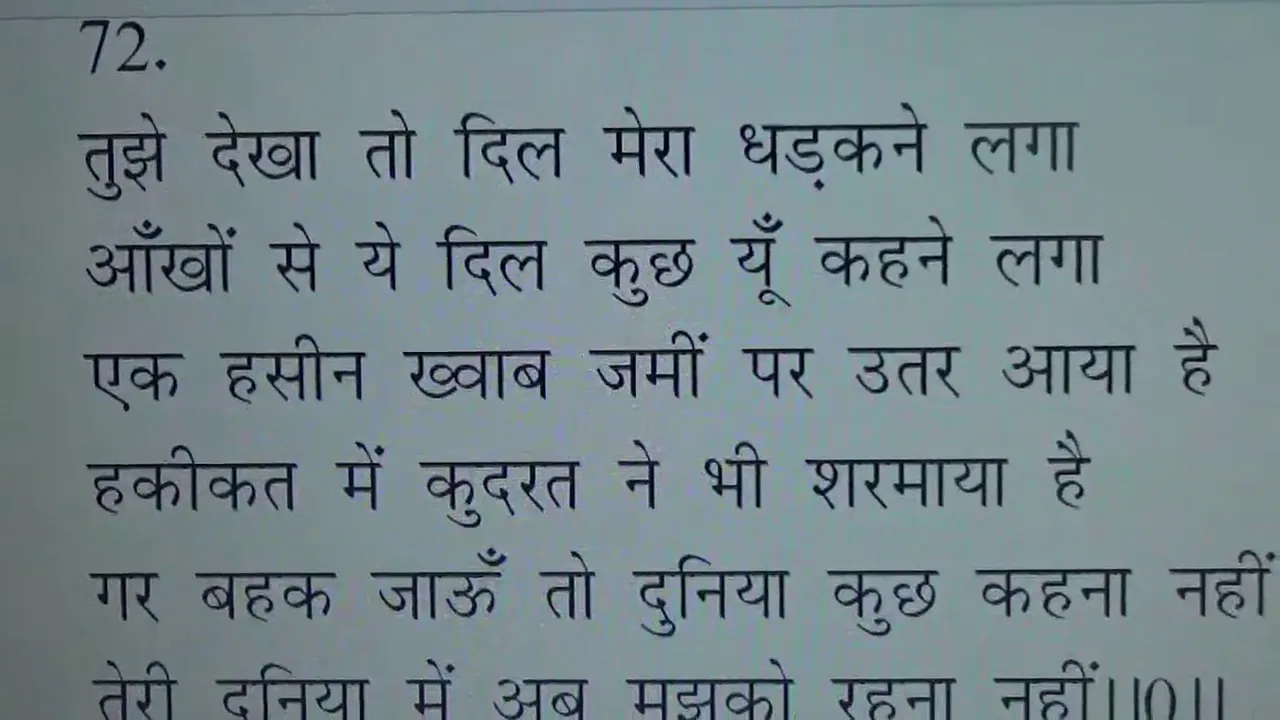 72.
तुझे देखा तो दिल मेरा धड़कने लगा
आँखों से ये दिल कुछ यूँ कहने लगा
एक हसीन ख्वाब जमीं पर उतर आया है
हकीकत में कुदरत ने भी शरमाया है
गर बहक जाऊँ तो दुनिया कुछ कहना नहीं
तेरी दुनिया में अब मुझको रहना नहीं||0||